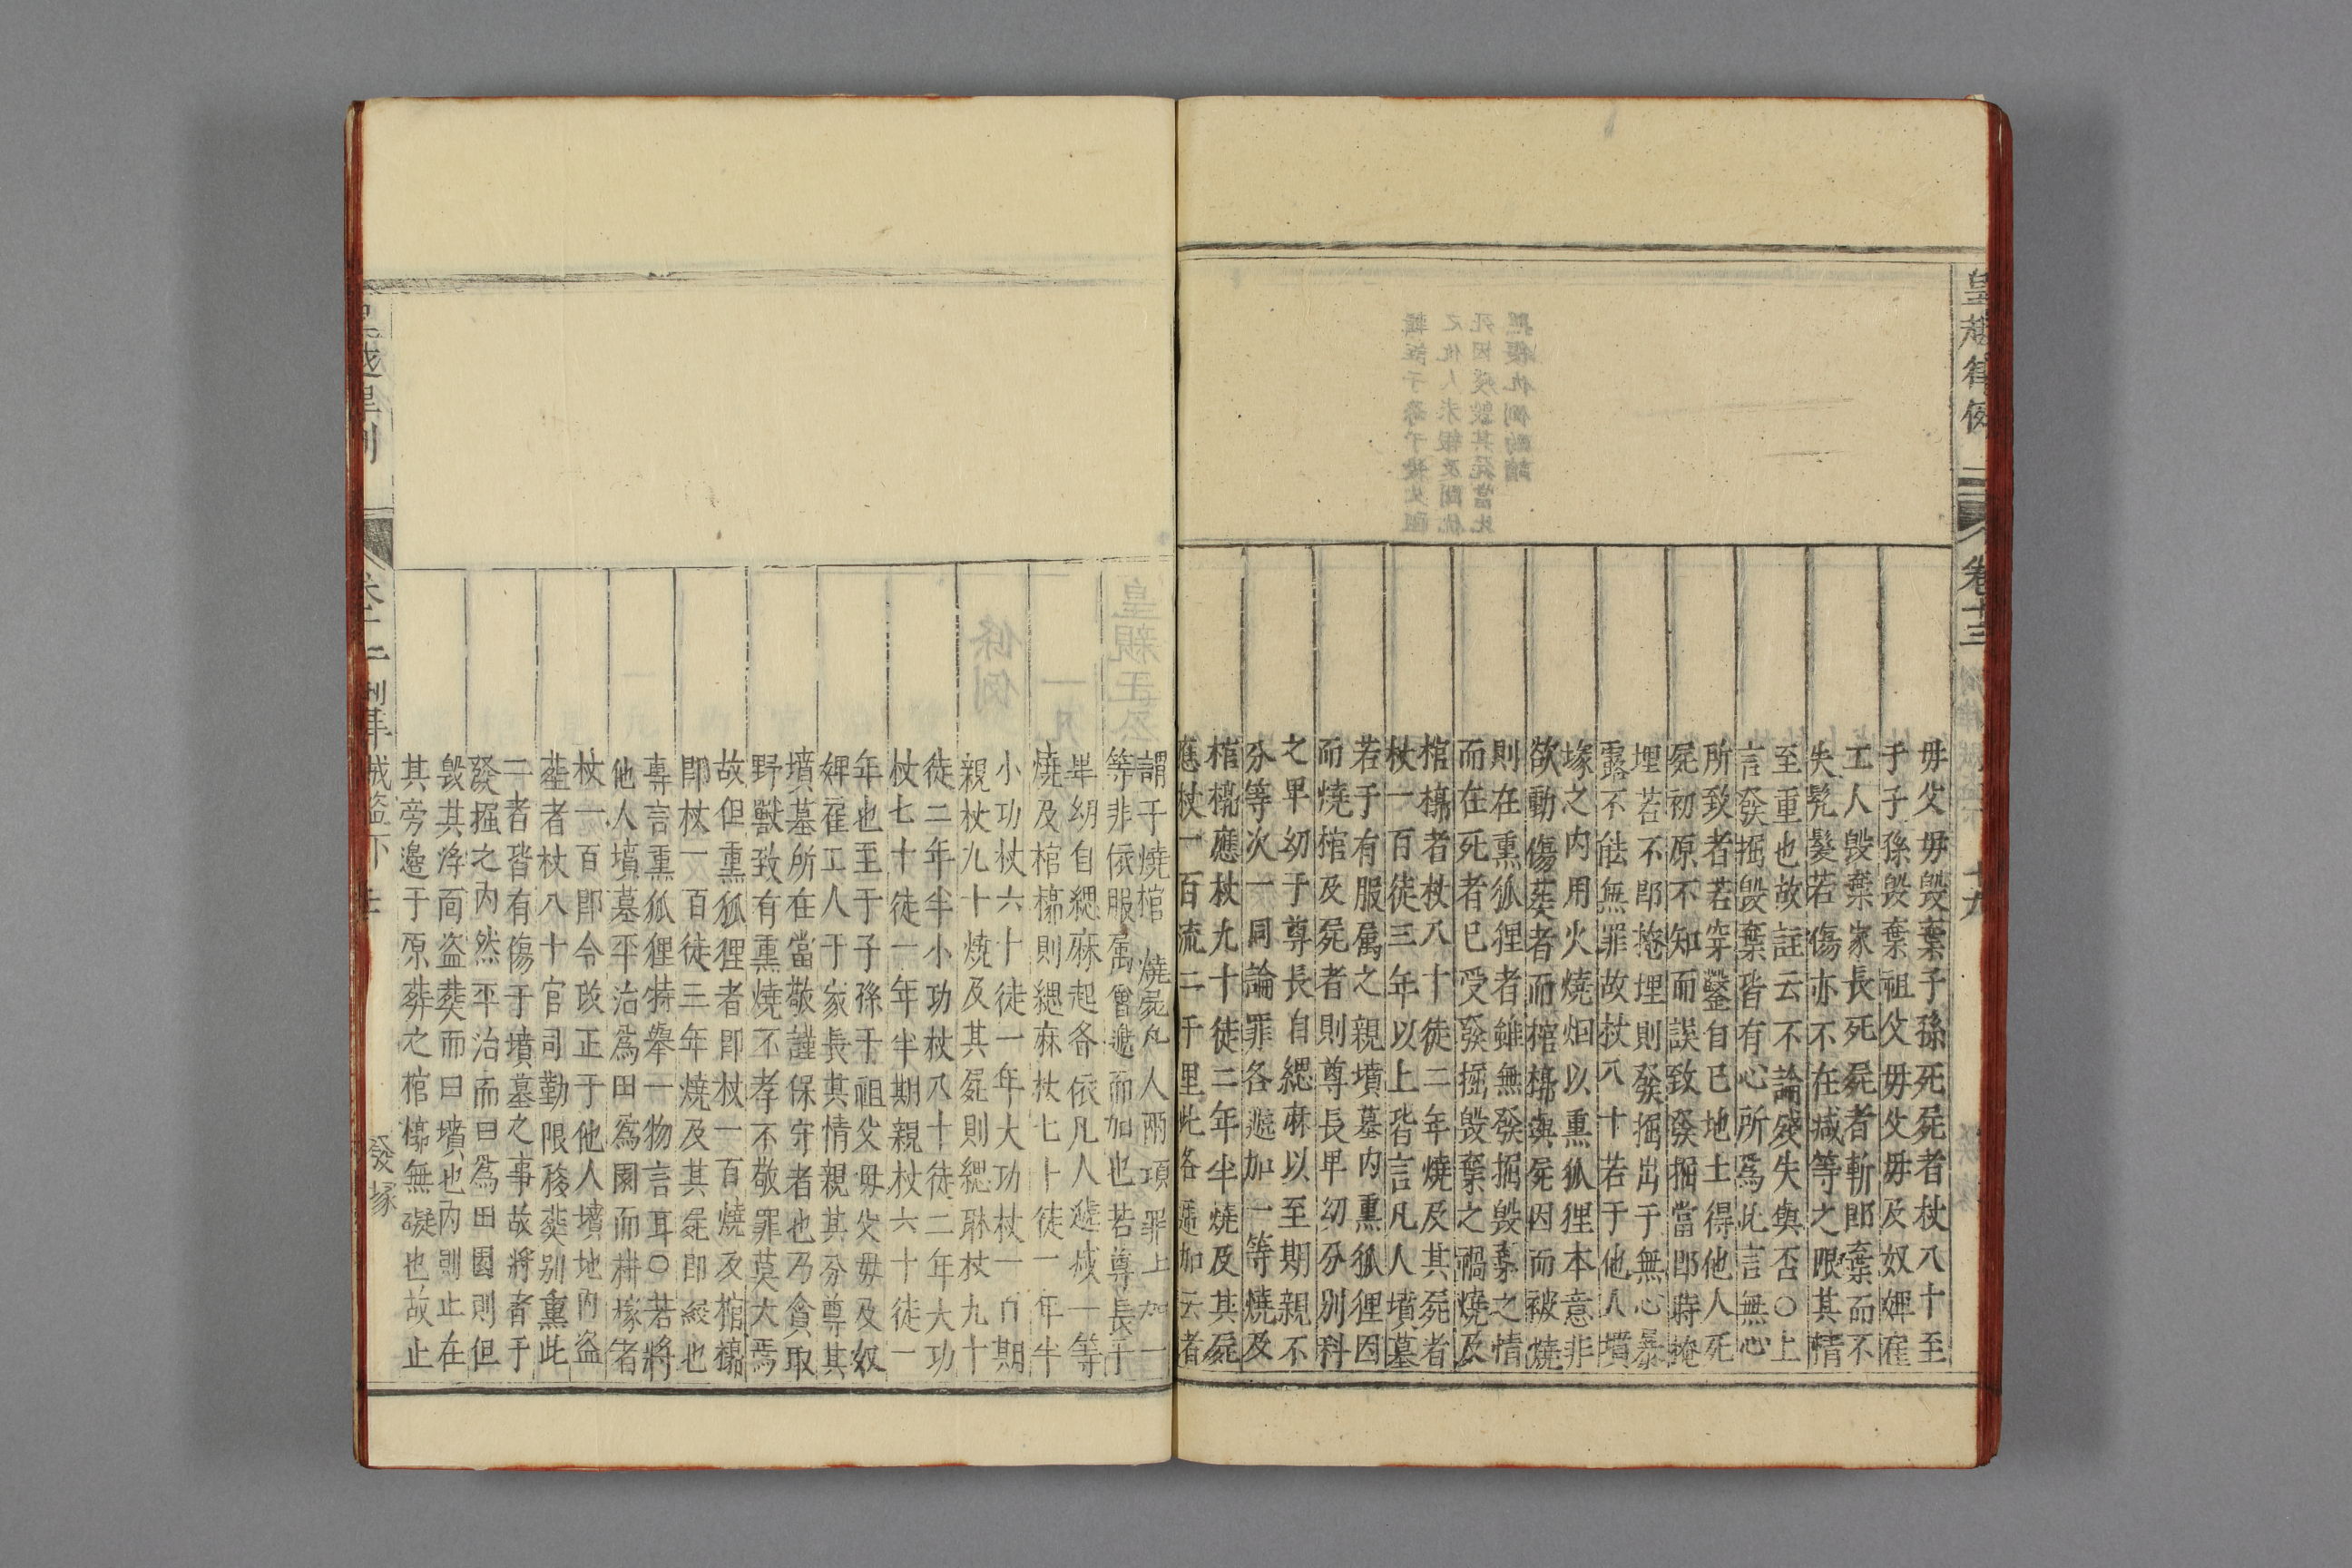 皇越律例
卷十三
十九
毋父毋毁棄子孫死屍者杖八十至
于子孫毁棄祖父毋父毋及奴婢雇
工人毁棄家長死屍者斬郎棄而不
失髡髮若傷亦不在减等之限其情
至重也故註云不論殘失與否○上
言發掘毁棄皆有心所爲此言無心
所致者若穿鑿自已地土得他人死
屍初原不知而誤致發掘當郎蒔掩
埋若不郎掩埋則發掘出于無心暴
露不能無罪故杖八十若于他人墳
塚之内用火燒烟以熏狐狸本意非
欲動傷葬者而棺槨與屍因而被燒
則在熏狐狸者雖無發掘毁棄之情
而在死者已受發掘毁棄之禍燒及
棺槨者杖八十徒二年燒及其屍者
杖一百徒三年以上皆言凡人墳墓
若于有服属之親墳墓内熏狐狸因
而燒棺及屍者則尊長卑幼分别科
之卑幼于尊長自緦麻以至期親不
分等次一同論罪各遞加一等燒及
棺槨應杖九十徒二年半燒及其屍
應杖一百流二千里此各遞加云者
謂于燒棺 燒屍凡人兩項罪上加一
等非依服属曾遞而加也若尊長于
卑幼自緦麻起各依凡人遞减一等
燒及棺槨則緦麻杖七十徒一年半
小功杖六十徒一年大功杖一百期
親杖九十燒及其屍則緦麻杖九十
徒二年半小功杖八十徒二年大功
杖七十徒一年半期親杖六十徒一
年也至于子孫于祖父毋父毋及奴
婢雇工人于家長其情親其分尊其
墳墓所在當敬謹保守者也乃貪取
野獸致有熏燒不孝不敬罪莫大焉
故但熏狐狸者郎杖一百燒及棺槨
郎杖一百徒三年燒及其屍郎絞也
專言熏狐狸特舉一物言耳○若將
他人墳墓平治爲田爲園而耕稼者
杖一百郎令改正于他人墳地内盗
葬者杖八十官司勤限移葬别熏此
二者皆有傷于墳墓之事故將者于
發掘之内然平治而曰爲田園則但
毁其浮面盗葬而曰墳也内則止在
其旁邉于原葬之棺槨無礙也故止
賊盗下
發塚